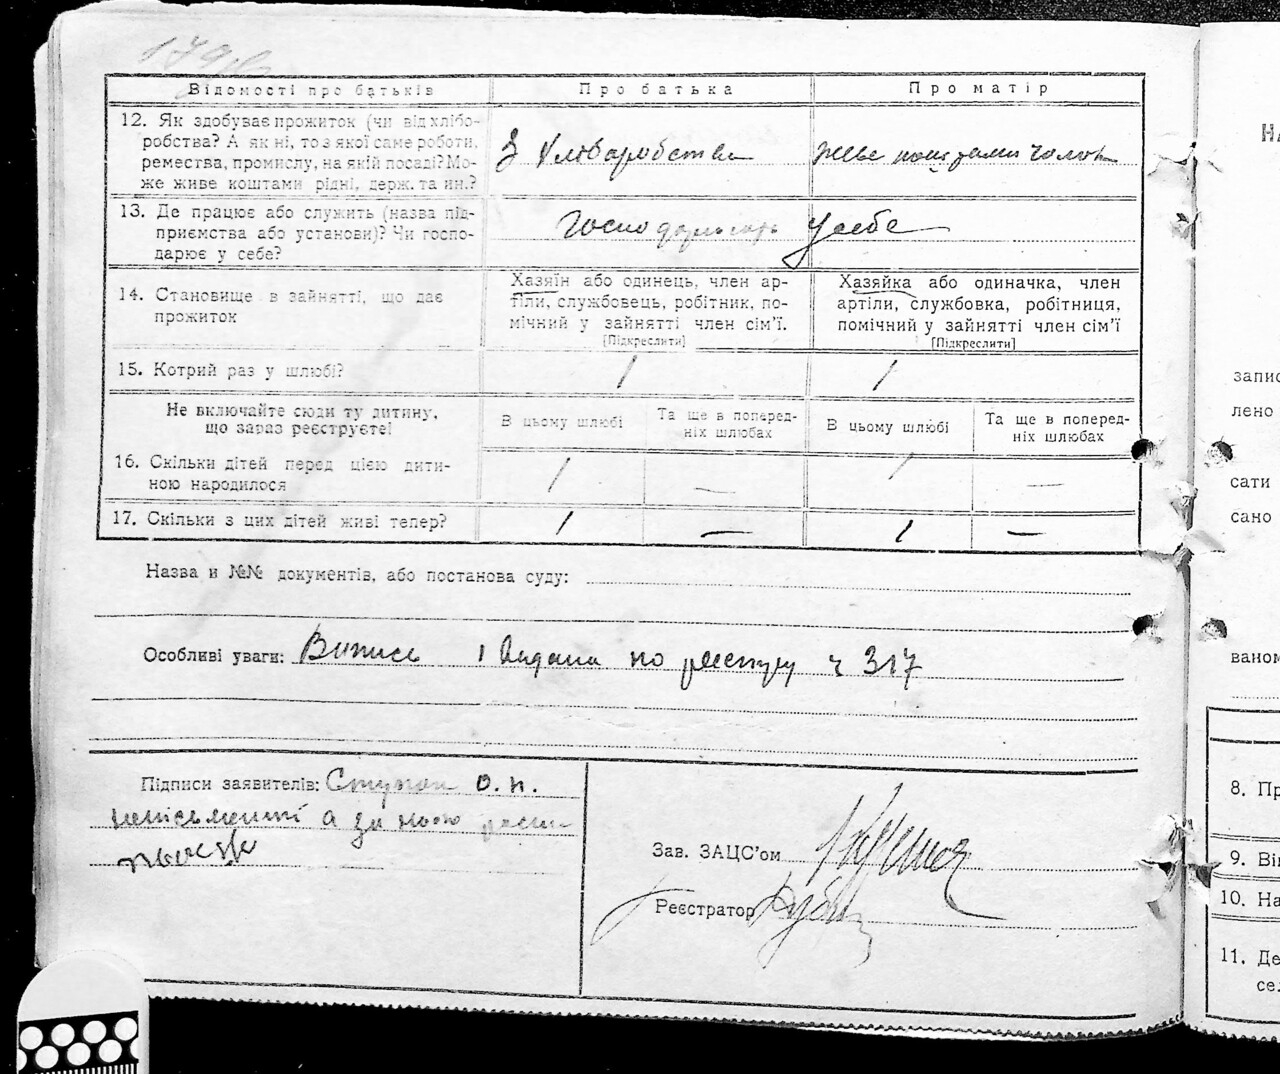 Відомості про батьків
Про батька
Про матір
12. Як здобуває прожиток (чи від хлібо-
робства? А як ні, то з якої саме роботи,
ремества, промислу, на якій посаді? Мо-
же живе коштами рідні, держ. та ин.?
З хліборобства
живе коштами чолов
13. Де працює або служить (назва під-
приємства або установи)? Чи госпо-
дарює у себе?
Господарюють у себе
14. Становище в зайнятті, що дає
прожиток
Хазяїн або одинець, член ар-
тіли, службовець, робітник, по-
мічний у зайнятті член сім'ї.
[Підкреслити]
Хазяйка або одиначка, член
артіли, службовка, робітниця,
помічний у зайнятті член сім'ї
[Підкреслити]
15. Котрий раз у шлюбі?
1
1
Не включайте сюди ту дитину,
що зараз реєструєте!
В цьому шлюбі
Та ще в поперед-
ніх шлюбах
В цьому шлюбі
Та ще в поперед-
ніх шлюбах
16. Скільки дітей перед цією дити-
ною народилося
1
—
1
—
17. Скільки з цих дітей живі тепер?
1
—
1
—
Назва и №№ документів, або постанова суду:
Особливі уваги: Випись і видана по реєстру ч 317
Підписи заявителів: Ступак О. П.
неписьменний а за нього
Зав. ЗАЦС'ом
Реєстратор
запис
лено
сати
сано
ваном
8. Пр
9. Ві
10. На
11. Де
се